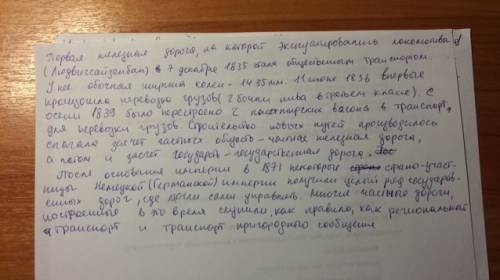 Первая железная дорога, на которой эксплуатировались локомотивы
(Людвигсайзенбан) 7 декабря 1835 стала общественным транспортом.
У нее обычная ширина колеи - 1435 мм. 11 июня 1836 впервые
произошла перевозка грузов (2 бочки пива в третьем класе). С
осени 1839 было перестроено 2 пассажирских вагона в транспорт,
для перевозки грузов. Строительство новых путей производилось
сначала засчет частных обществ - частная железная дорога,
а потом и засчет государств - государственная дорога.
После основания империи в 1871 некоторые страны-участ-
ницы Немецкой (Германской) империи получили целый ряд государств-
енных дорог, где могли сами управлять. Многие частные дороги,
построенные в это время служили, как правило, как региональный
транспорт и транспорт пригородного сообщения